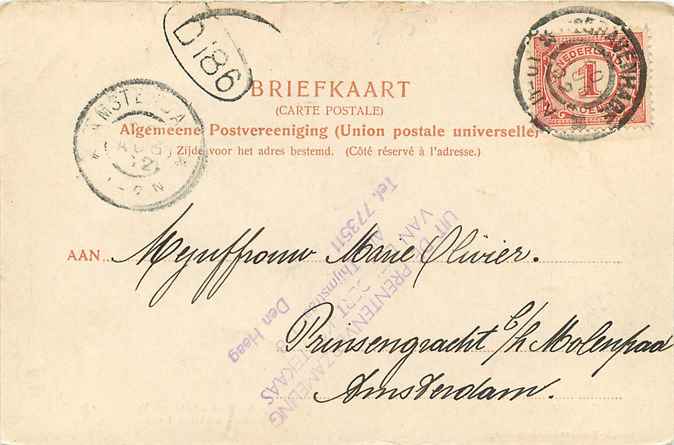 D186
'S GRAVENHAGE
NEDERLAND
1
AMSTERDAM
AUG
1-2 N
BRIEFKAART
(CARTE POSTALE)
Algemeene Postvereeniging (Union postale universelle)
Zijde voor het adres bestemd. (Côté réservé à l'adresse.)
AAN... Mejuffrouw Marie Olivier.
Prinsengracht b/h Molenpad
Amsterdam.
UIT DE PRENTENVERZAMELING
VAN
Tel. 773511
Den Haag